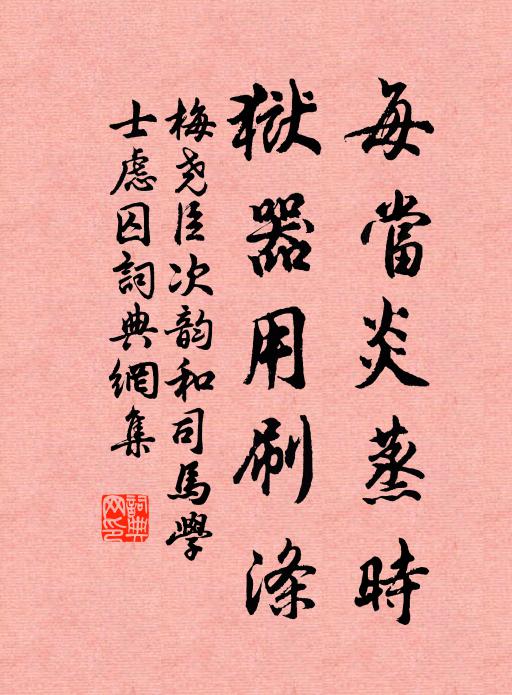 每當炎蒸時
獄器用刷滌
梅尧臣次韵和司馬學
士慮囚詞典網集
詞典网印